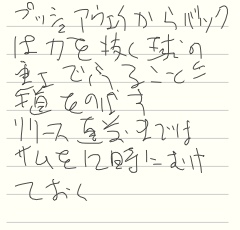 プッシュアウェイからバック
は力を抜く球の
重さでふること
軌道をのばす
リリース直前までは
サムを12時にむけ
ておく